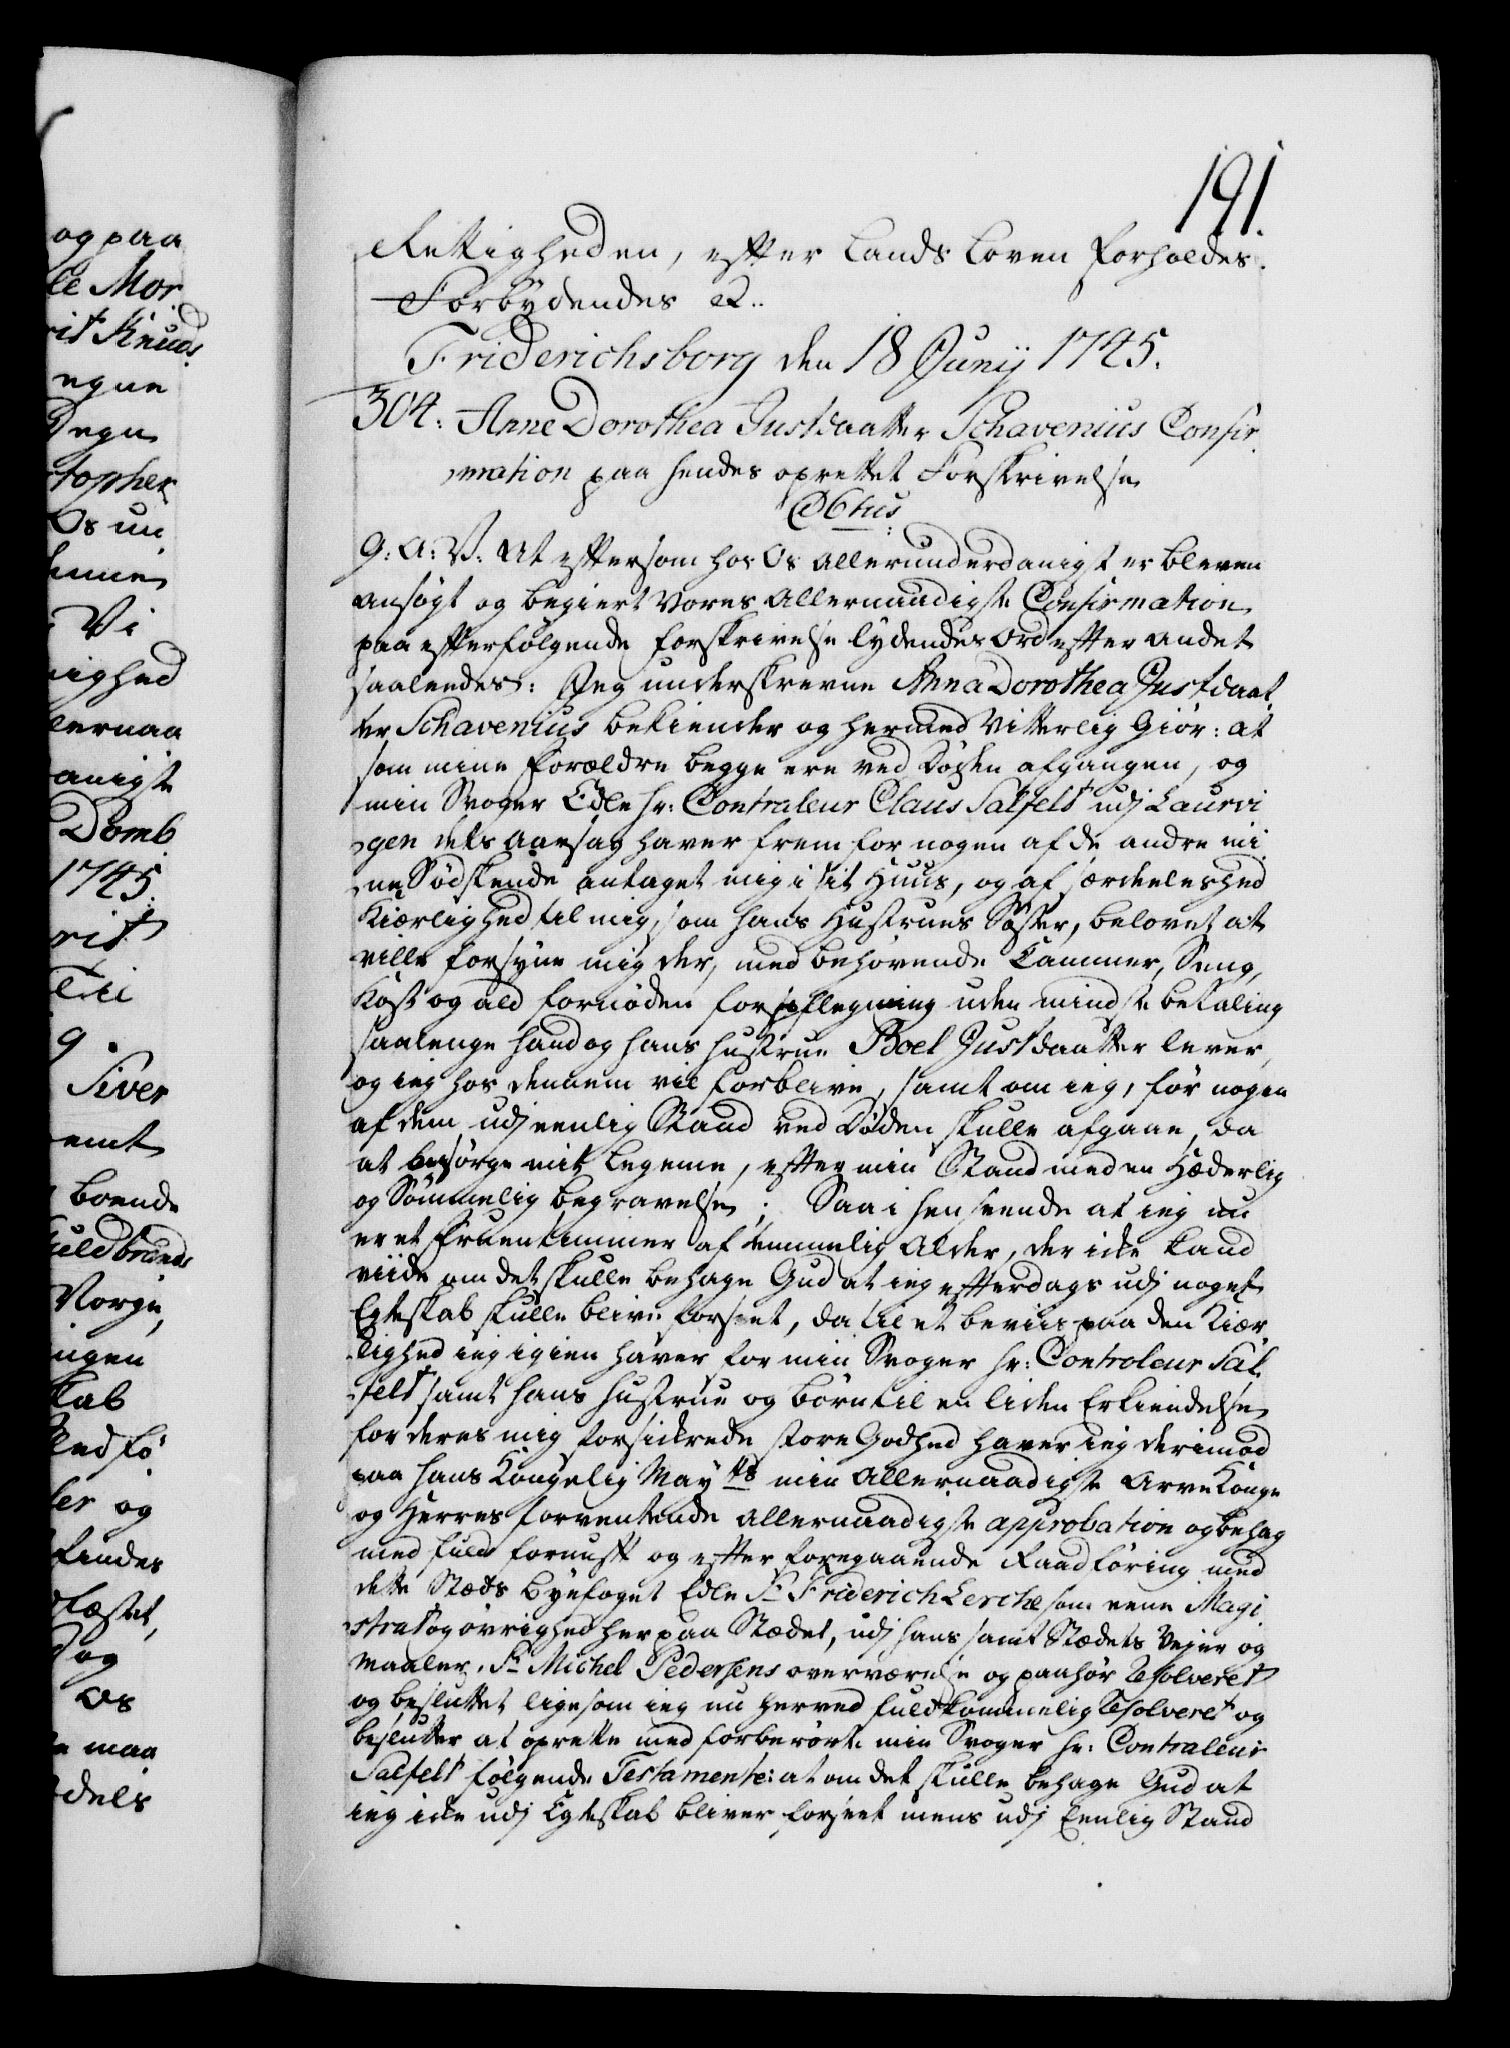 191.
Rettigheden, efter Lands Loven forholdes.
Forbydendes &c.
Friderichsborg den 18 Junij 1745.
304. Anne Dorothea Justdaatter Schavenius Confir
mation paa hendes oprettet Forskrivelse
G: A: V: At eftersom hos Os allerunderdanigst er bleven
ansøgt og begiert Vores allernaadigste Confirmation
paa efterfølgende forskrivelse lydendes Ord efter andet
saaledes: Jeg underskrevne Anna Dorothea Justdaat
ter Schavenius bekiender og hermed Vitterlig Giør: at
som mine forældre begge ere ved Døden afgangen, og
min Svoger Edle hr: Contraleur Claus Salfelt udj Laurvi
gen dets aarsag haver frem for nogen af de andre mi
ne Sødskende antaget mig i sit Huus, og af særdeleshed
Kiærlighed til mig, som hans Hustrues Søster, belovet at
ville forsyne mig der, med behøvende Cammer, Seng,
Kost og ald fornøden forpflegning uden mindste betaling
saalenge hand og hans hustrue Boel Justdaatter lever,
og ieg hos dennem vil forblive, samt om ieg, før nogen
af dem udj eenlig Stand ved Døden skulle afgaae, da
at besørge mit legeme, efter min Stand med en Hæderlig
og Sømmelig begravelse; Saa i henseende at ieg nu
er et fruentimmer af temmelig alder, der icke kand
viide om det skulle behage Gud at ieg efterdags udj noget
Egteskab skulle blive forseet, da til et beviis paa den Kiær
lighed ieg igien haver for min Svoger hr: Controleur Sal
felt samt hans hustrue og børn til en liden Erkiendelse
for deres mig forsickrede store Godhed haver ieg derimod
paa hans Kongelig May.ts min allernaadigste Arve Konge
og Herres forventende allernaadigste approbation og behag
med fuld fornuft og efter foregaaende Raadføring med
dette Stæds Byefoget Edle Sr Friderich Lerche som eene Magi
strat og øvrighed her paa Stædet, udj hans samt Stædets Vejer og
maaler, Sr Michel Pedersens overværelse og paahør Resolveret
og besluttet ligesom ieg nu herved fuldkommelig Resolveret og
beslutter at oprette med forberørte min Svoger hr: Contraleur
Salfelt følgende Testamente: at om det skulle behage Gud at
ieg icke udj Egteskab bliver forseet mens udj Eenlig Stand